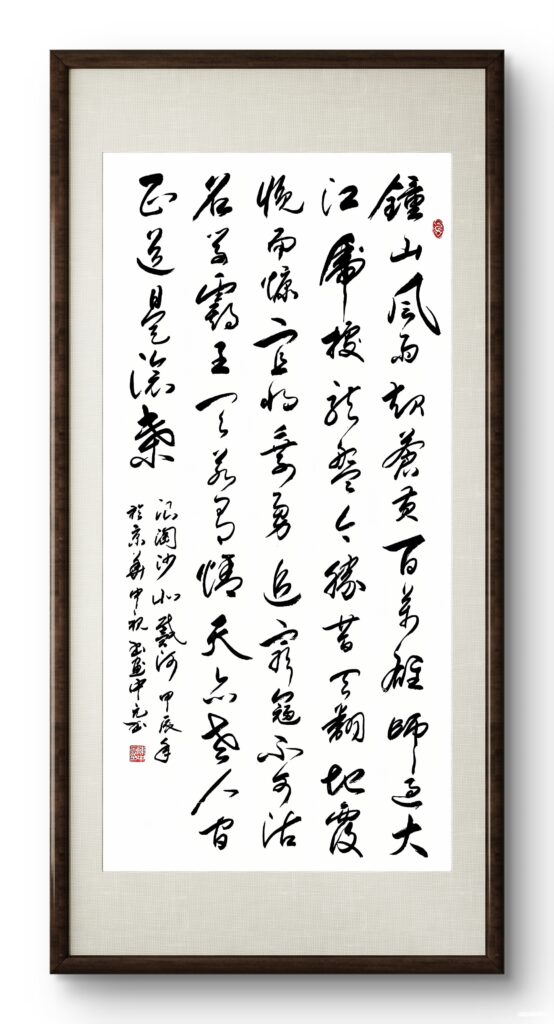 鐘山風雨起蒼黃百萬雄師過大
江虎踞龍盤今勝昔天翻地覆
慨而慷宜將剩勇追窮寇不可沽
名學霸王天若有情天亦老人間
正道是滄桑
浪淘沙北戴河甲辰年
於京華中視書畫中元書